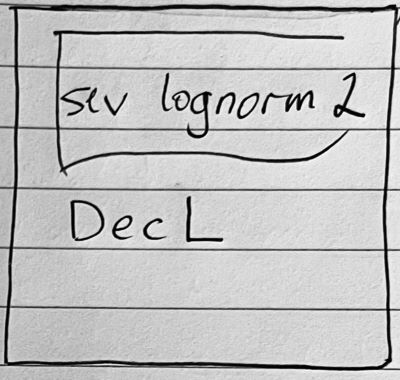 sev lognorm 2
DecL